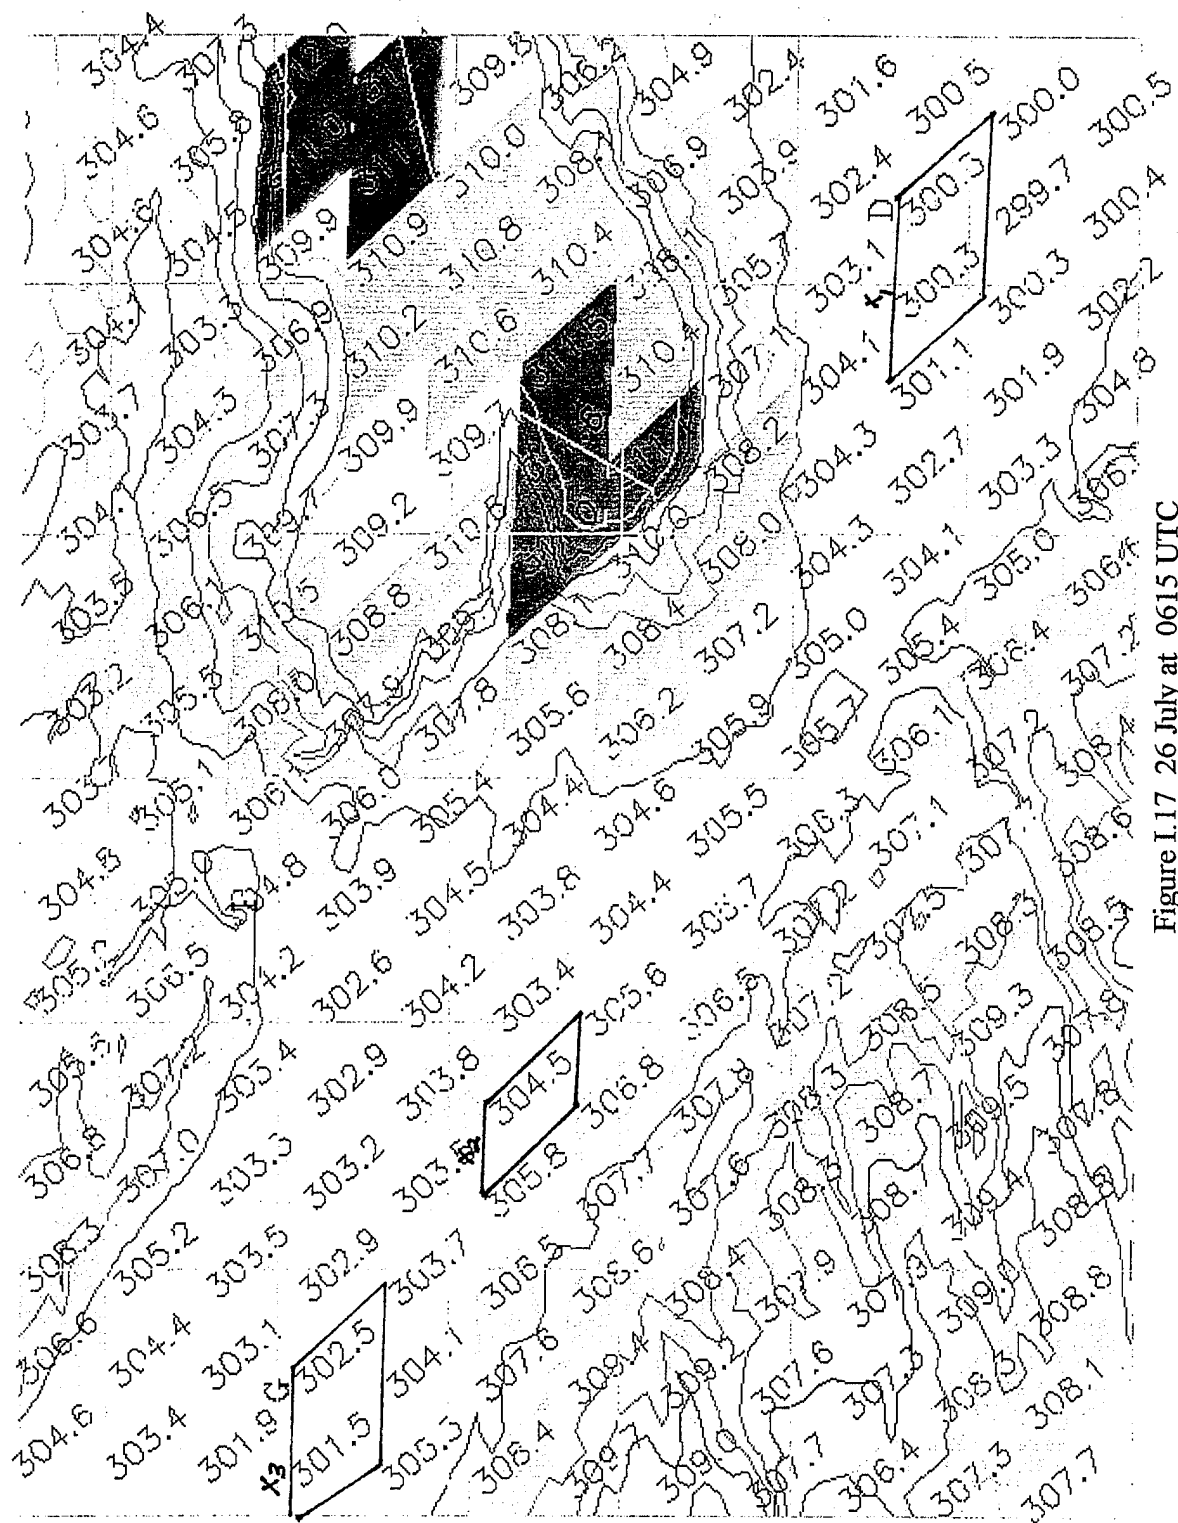 304.4 307.3 306.2 304.9 302.4 301.6 300.5 300.0 300.5
304.6 305.8 310.0 306.9 303.9 302.4 300.3 299.7 300.4
D
304.6 304.5 309.9 310.9 310.8 310.4 308.1 305.7 303.1 300.3 300.3 302.2
304.1 303.3 306.9 310.2 310.6 310.4 307.1 304.1 301.1 301.9 304.8
303.7 304.3 307.3 309.9 309.7 308.2 304.3 302.7 303.3
306.3 309.2 310.6 310.0 308.0 304.3 304.1 305.0
303.5 306.1 310.5 308.8 308.1 308.4 307.2 305.0 305.4 306.4 307.2
303.2 305.5 308.0 307.9 307.8 305.6 306.2 305.9 305.7 306.1 307.2 308.4
305.1 306.1 306.0 305.4 304.4 304.6 305.5 306.3 307.1 308.6
304.3 303.0 304.8 303.9 304.5 303.8 304.4 305.7 307.2 307.5 308.3 308.5
305.2 306.5 304.2 302.6 304.2 303.4 305.6 306.5 307.2 308.5 309.3 307.8
305.5 307.2 303.4 302.9 303.8 304.5 306.8 307.8 308.3 308.7 309.5 307.8
306.8 307.0 303.3 303.2 303.5 305.8 307.7 307.6 308.3 309.4 308.8
306.3 305.2 303.5 302.9 303.7 306.5 308.6 308.4 307.9 307.9 309.0 308.8
G
306.6 304.4 303.1 302.5 304.1 307.6 309.4 309.2 307.6 307.3 308.3 308.1
X3
304.6 303.4 301.9 301.5 305.3 306.4 309.2 309.0 307.7 306.4 307.3 307.7
Figure I.17 26 July at 0615 UTC